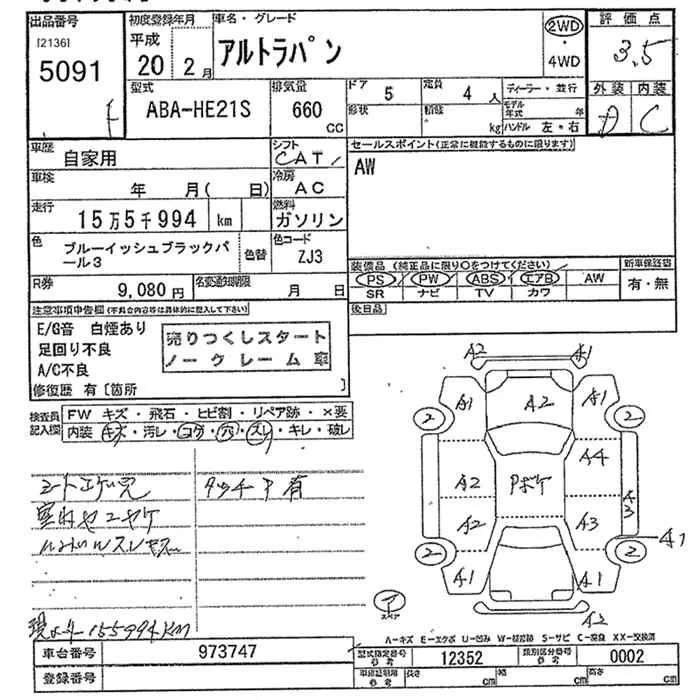 出品番号 初度登録年月 車名・グレード 2WD ・ 4WD 評価点
[2136] 平成 アルトラパン 3.5
5091 20年 2月
型式 排気量 ドア 5 定員 4人 ディーラー・並行 外装 内装
F ABA-HE21S 660 CC 形状 積載 kg モデル年式 年 ハンドル 左・右 D C
車歴 自家用 シフト CAT セールスポイント(正常に機能するものに限ります)
車検 年 月( 日) 冷房 AC AW
走行 15万5千994 km 燃料 ガソリン
色 ブルーイッシュブラックパール3 色替 色コード ZJ3
装備品 (純正品に限り○をつけてください) 新車保証書
R券 9,080円 名変通知期限 月 日 PS PW ABS エアB AW 有・無
SR ナビ TV カワ
注意事項申告欄(不具合内容等は具体的に記入して下さい) 後日品
E/G音 白煙あり
足回り不良 売りつくしスタート
A/C不良 ノークレーム車
修復歴 有 [箇所 ]
検査員記入欄 FW キズ・飛石・ヒビ割・リペア跡・×要
内装 キズ・汚レ・コゲ・穴・スレ・キレ・破レ
A2 A1
A1 A2 A1
2 2
A4
A2 Pボケ
A3
A2 A3
2 2 A1
A1 A1
A2
シートコゲ穴 タッチP有
室内ヤニヤケ
ハンドルスレキズ
スペア
現メーター155994KM
A-キズ E-エクボ U-凹み W-補修跡 S-サビ C-腐食 XX-交換済
車台番号 973747 型式指定番号 参考 12352 類別区分番号 参考 0002
登録番号 車庫証明用 参考 長さ cm 幅 cm 高さ cm